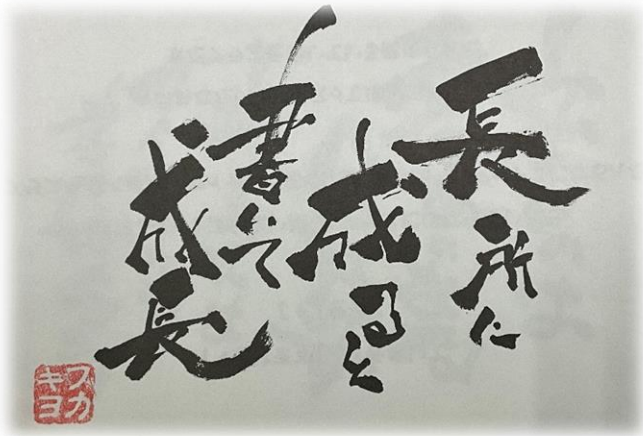 長所に
成ると
書いて
成長
スカ
キヨ